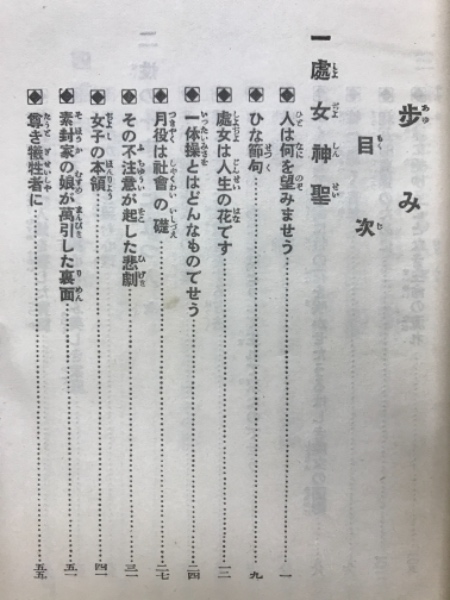 歩み
目次
一 處女神聖
人は何を望みませう……一
ひな節句……九
處女は人生の花です……一二
一体操とはどんなものでせう……二四
月役は社會の礎……二七
その不注意が起した悲劇……三一
女子の本領……四一
素封家の娘が萬引した裏面……五一
尊き犠牲者に……五五